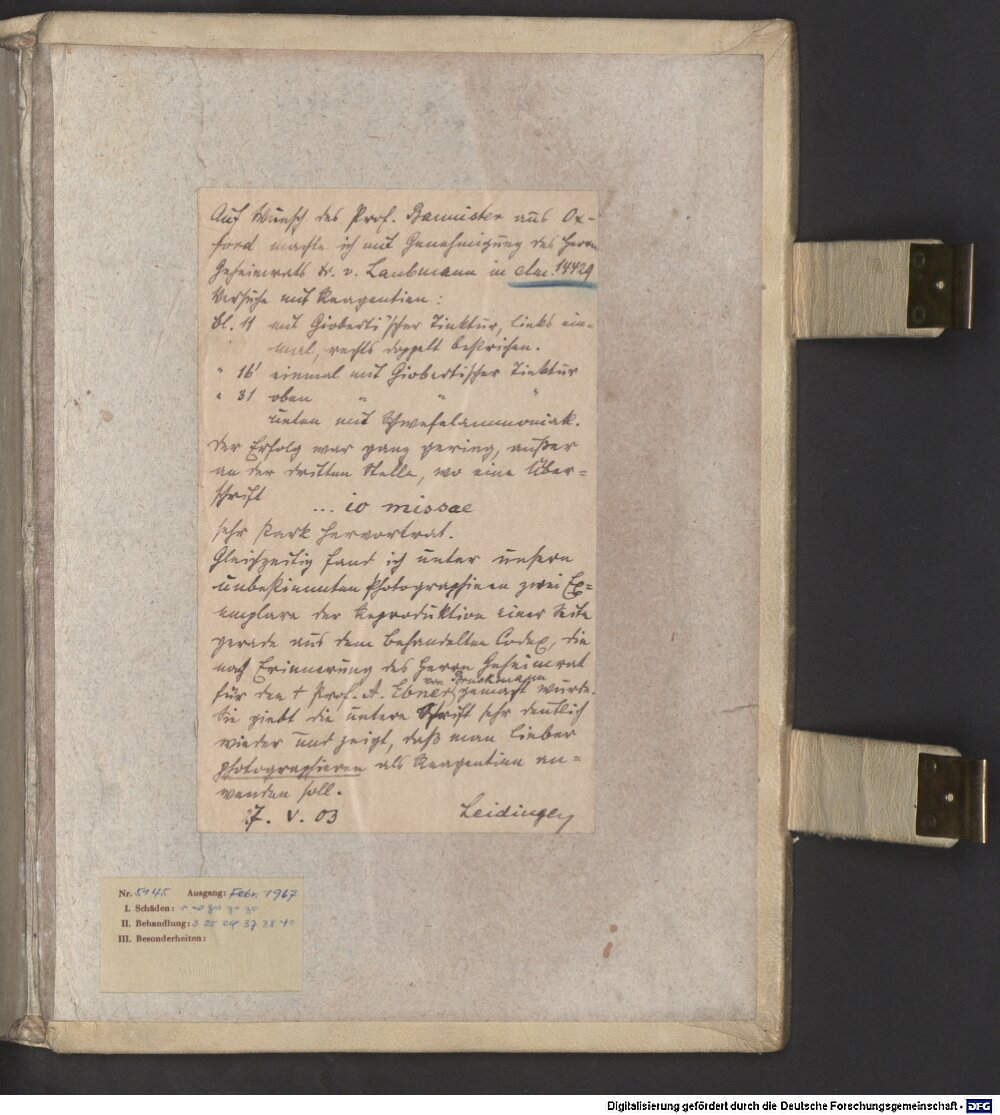 Auf Wunsch des Prof. Bannister aus Ox-
ford machte ich mit Genehmigung des Herrn
Geheimrats Dr. v. Laubmann in clm. 14429
Versuche mit Reagentien:
Bl. 11 mit Giobertischer Tinktur, links ein-
mal, rechts doppelt bestrichen.
" 16' einmal mit Giobertischer Tinktur
" 31 oben " " "
unten mit Schwefelammoniak.
Der Erfolg war ganz gering, außer
an der dritten Stelle, wo eine Über-
schrift
... io missae
sehr stark hervortrat.
Gleichzeitig fand ich unter unsern
unbestimmten Photographieen zwei Ex-
emplare der Reproduktion einer Seite
gerade aus dem behandelten Codex, die
nach Erinnerung des Herrn Geheimrat
von Bruckmann
für den † Prof. A. Ebner gemacht wurde.
Sie giebt die untere Schrift sehr deutlich
wieder und zeigt, daß man lieber
photographieren als Reagentien an-
wenden soll.
7. V. 03 Leidinger
Nr. 5145 Ausgang: Febr. 1967
I. Schäden:
II. Behandlung: 3 25 29 37 38 40
III. Besonderheiten:
Digitalisierung gefördert durch die Deutsche Forschungsgemeinschaft - DFG